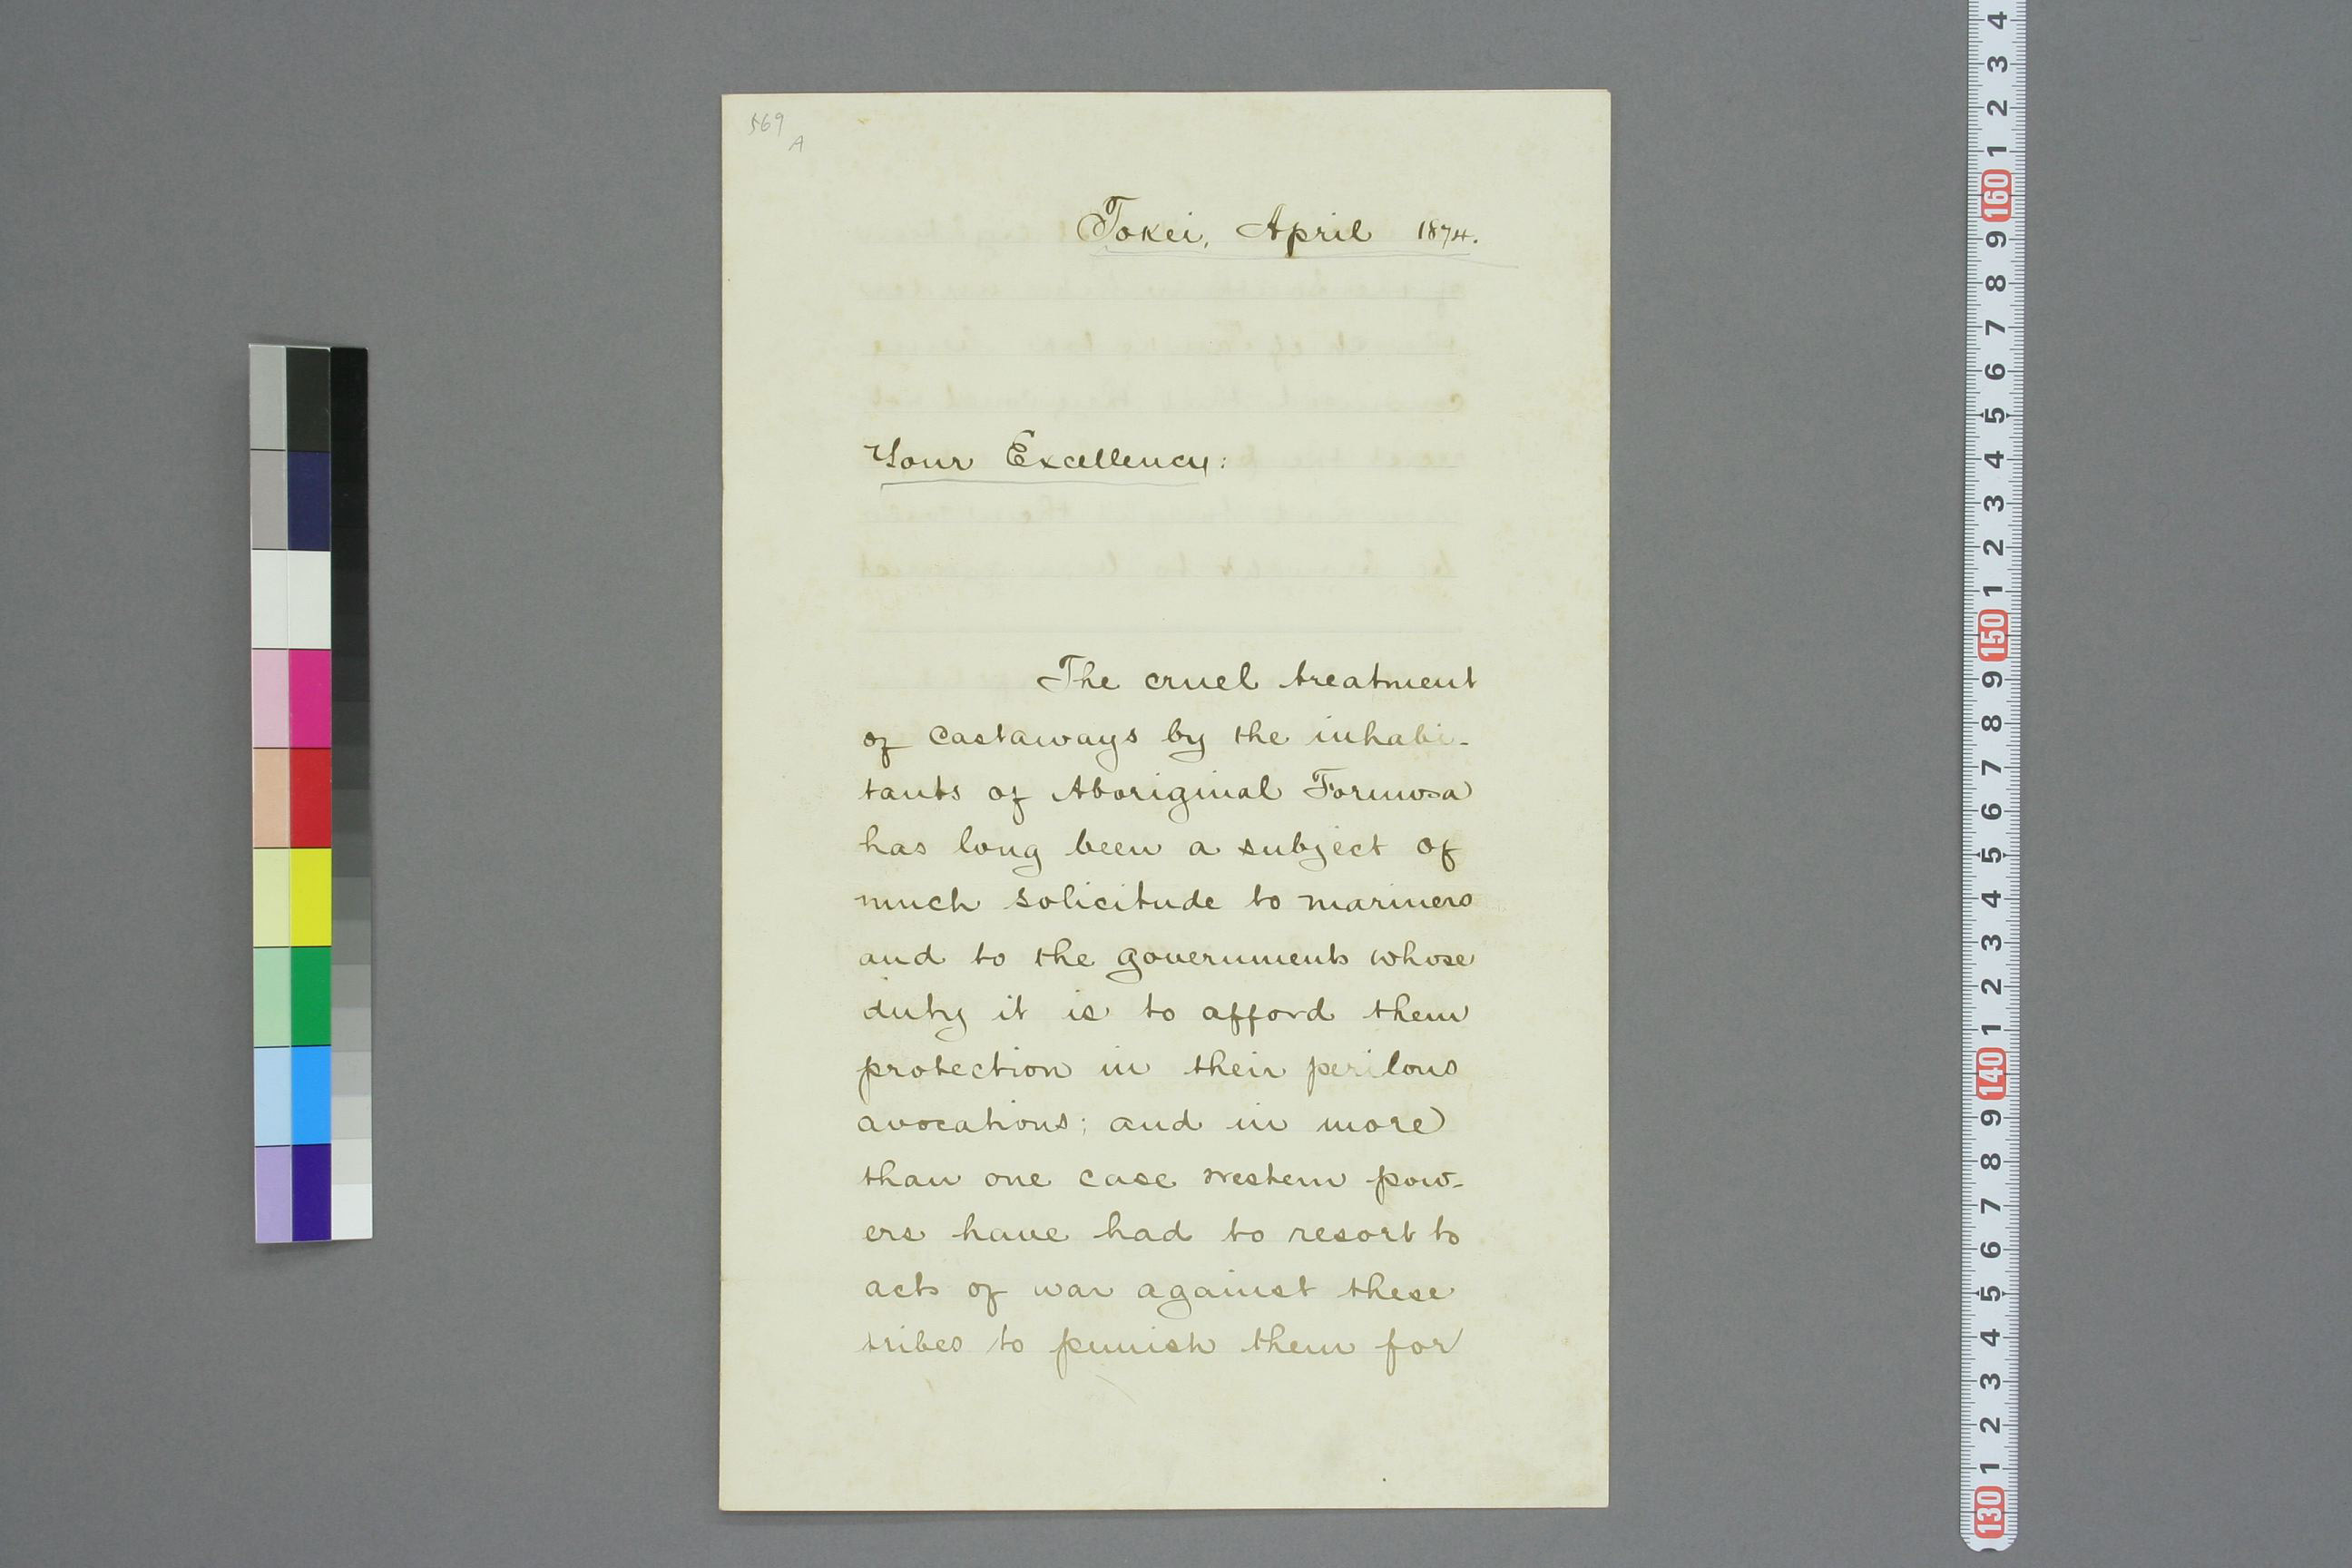 569
A
Tokei, April 1874.
Your Excellency:
The cruel treatment
of castaways by the inhabi-
tants of Aboriginal Formosa
has long been a subject of
much solicitude to mariners
and to the governments whose
duty it is to afford them
protection in their perilous
avocations; and in more
than one case western pow-
ers have had to resort to
acts of war against these
tribes to punish them for
4
3
2
1
160
9
8
7
6
5
4
3
2
1
150
9
8
7
6
5
4
3
2
1
140
9
8
7
6
5
4
3
2
1
130